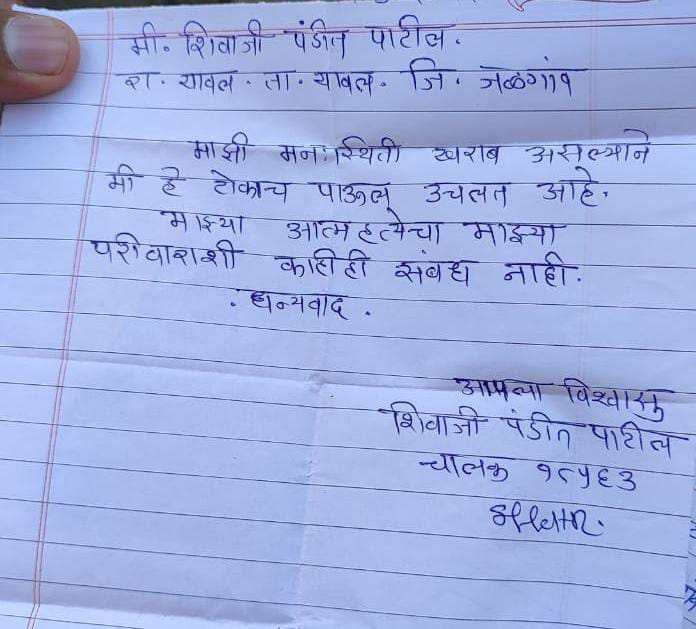 मी. शिवाजी पंडीत पाटील.
रा. यावल. ता. यावल. जि. जळगांव
माझी मनःस्थिती खराब असल्याने
मी हे टोकाच पाऊल उचलत आहे.
माझ्या आत्महत्येचा माझ्या
परीवाराशी काहीही संबंध नाही.
. धन्यवाद .
आपला विश्वासु
शिवाजी पंडीत पाटील
चालक १८५६३